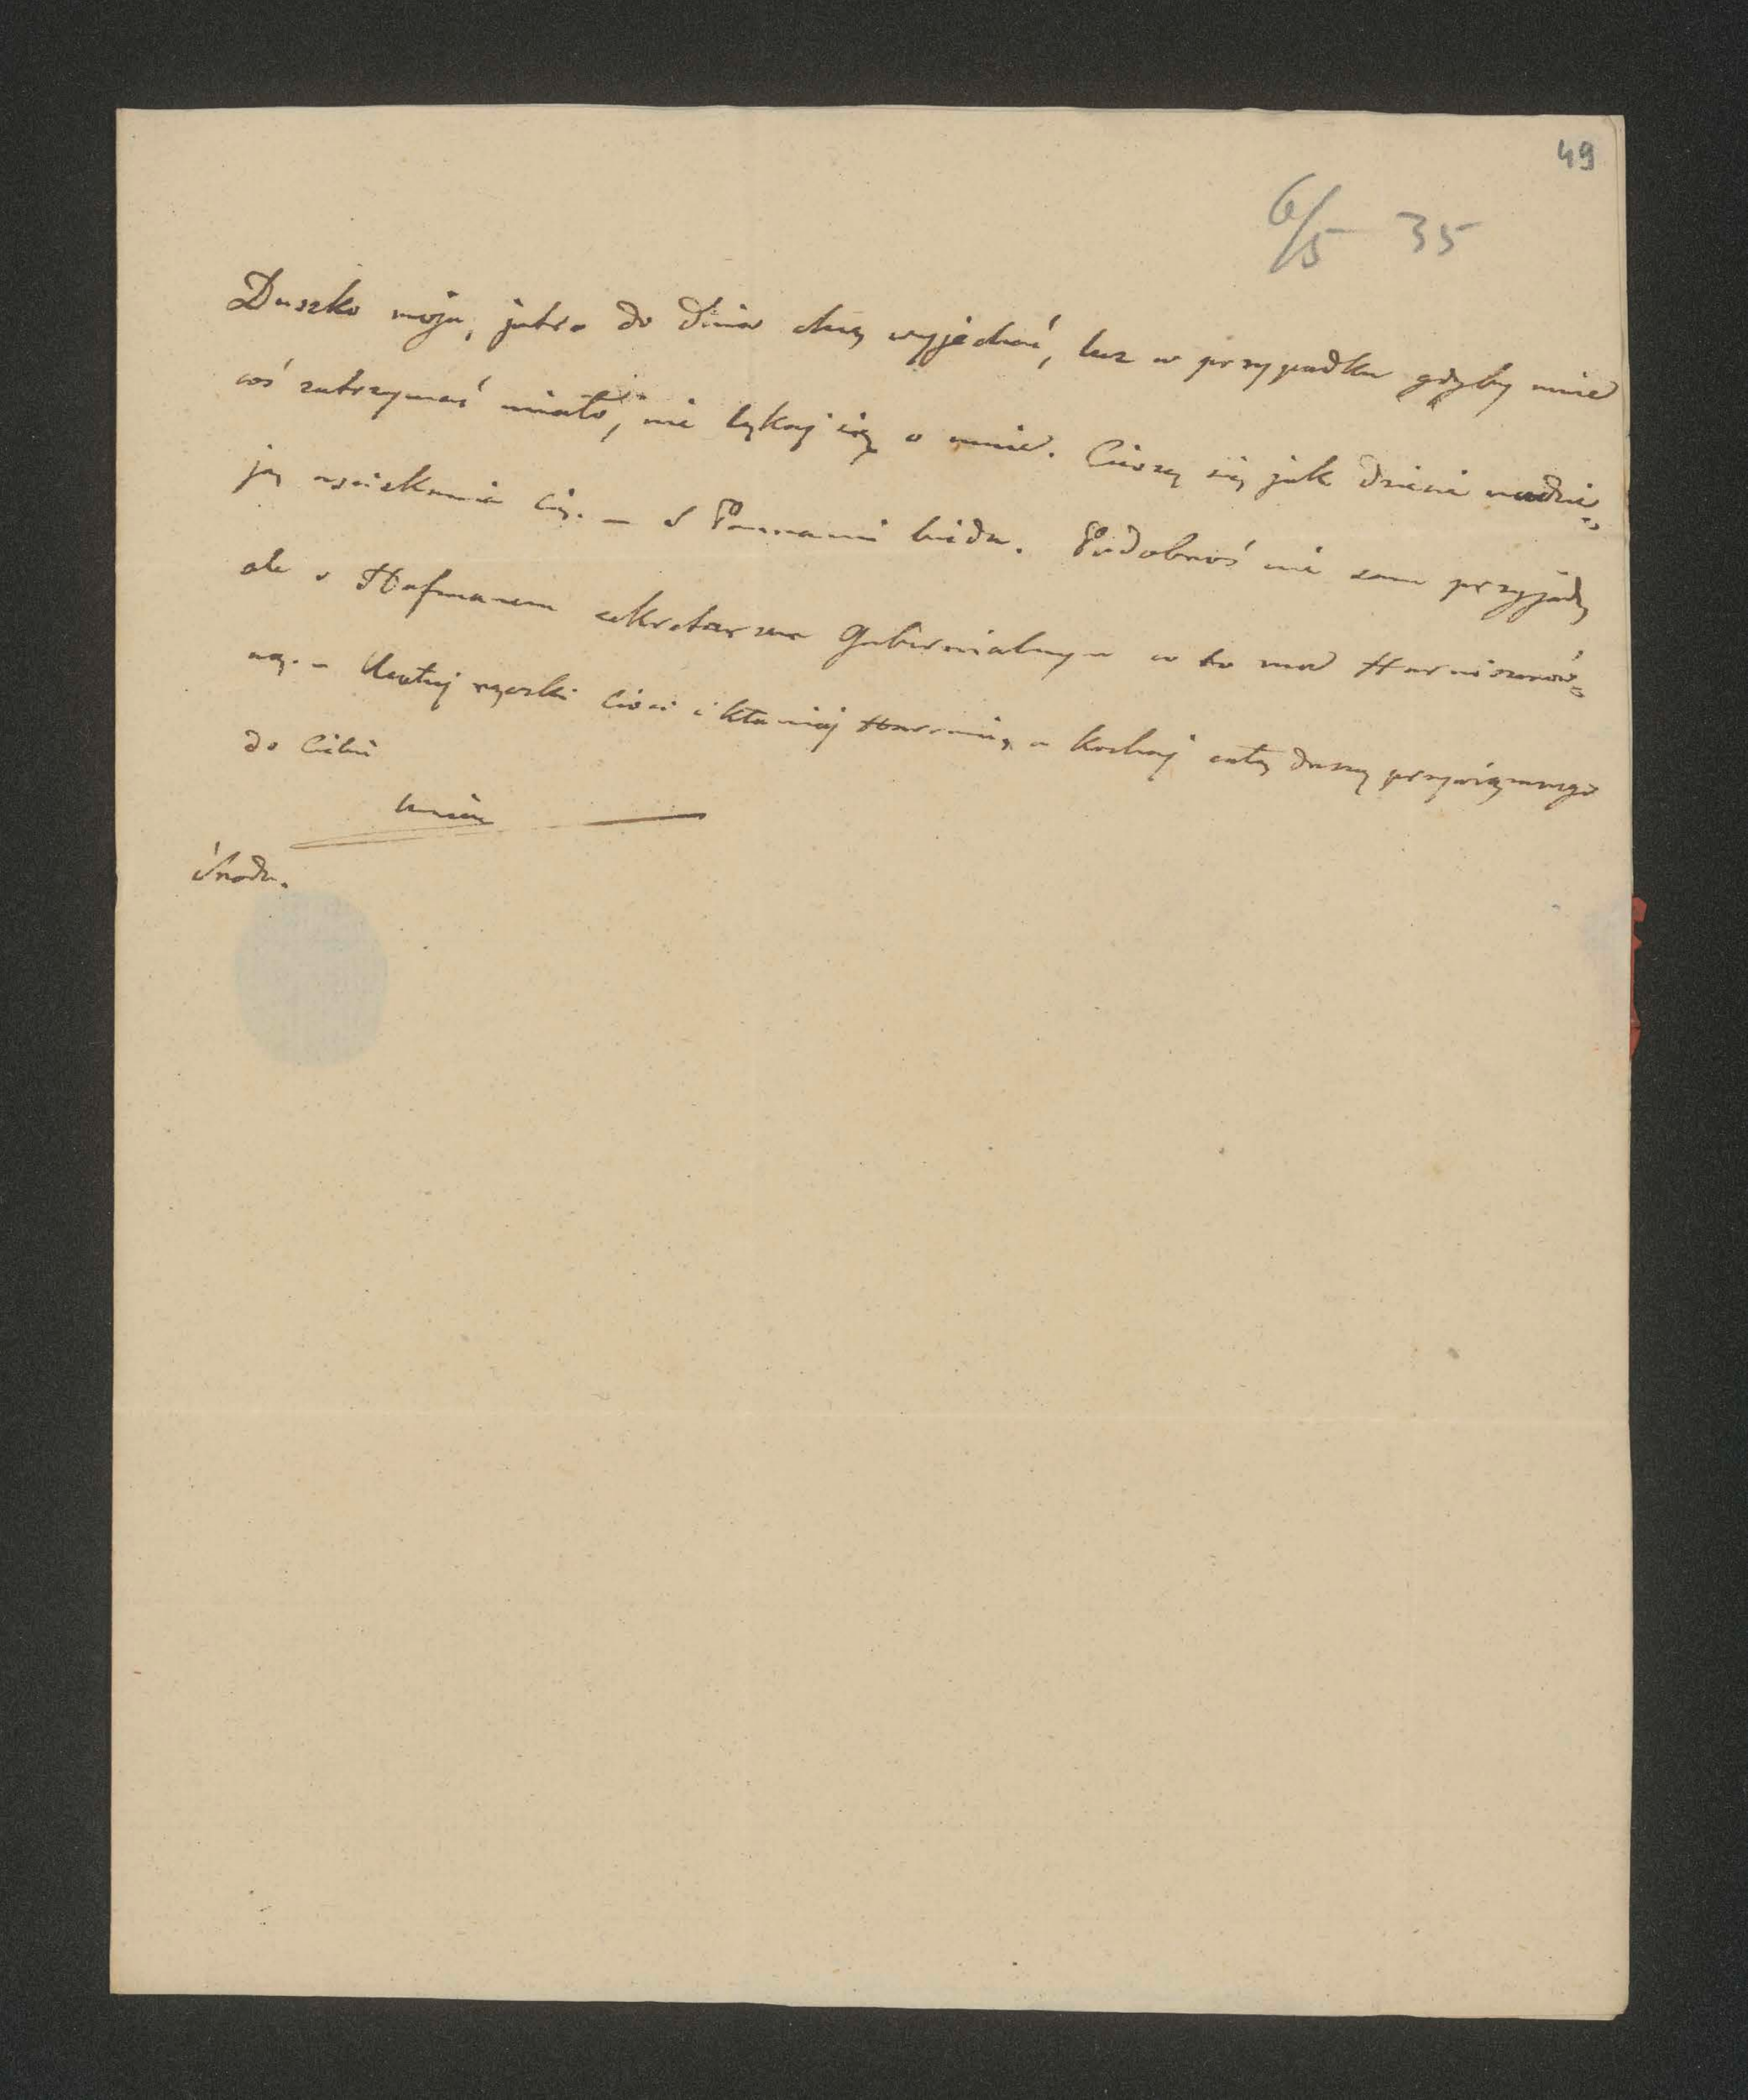 49
6/5 35
Duszko moja, jutro do dnia chcę wyjechać, lecz w przypadku gdyby mnie
coś zatrzymać miało, nie lękaj się o mnie. Cieszę się jak dziecię nadzie=
ją uściskania Cię. — Z Pannami bieda. Podobnoś nie sam przyjadę
ale z Hofmanem sekretarzem Gubernialnym w to
ną. – Ucałuj rączki Cioci i kłaniaj a kochaj całą duszą przywiązanego
do Ciebie
Środa.